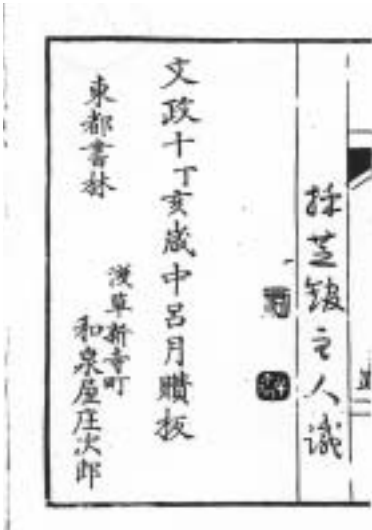 採芝館主人識
文政十丁亥歳中呂月贖板
東都書林
淺草新寺町
和泉屋庄次郎